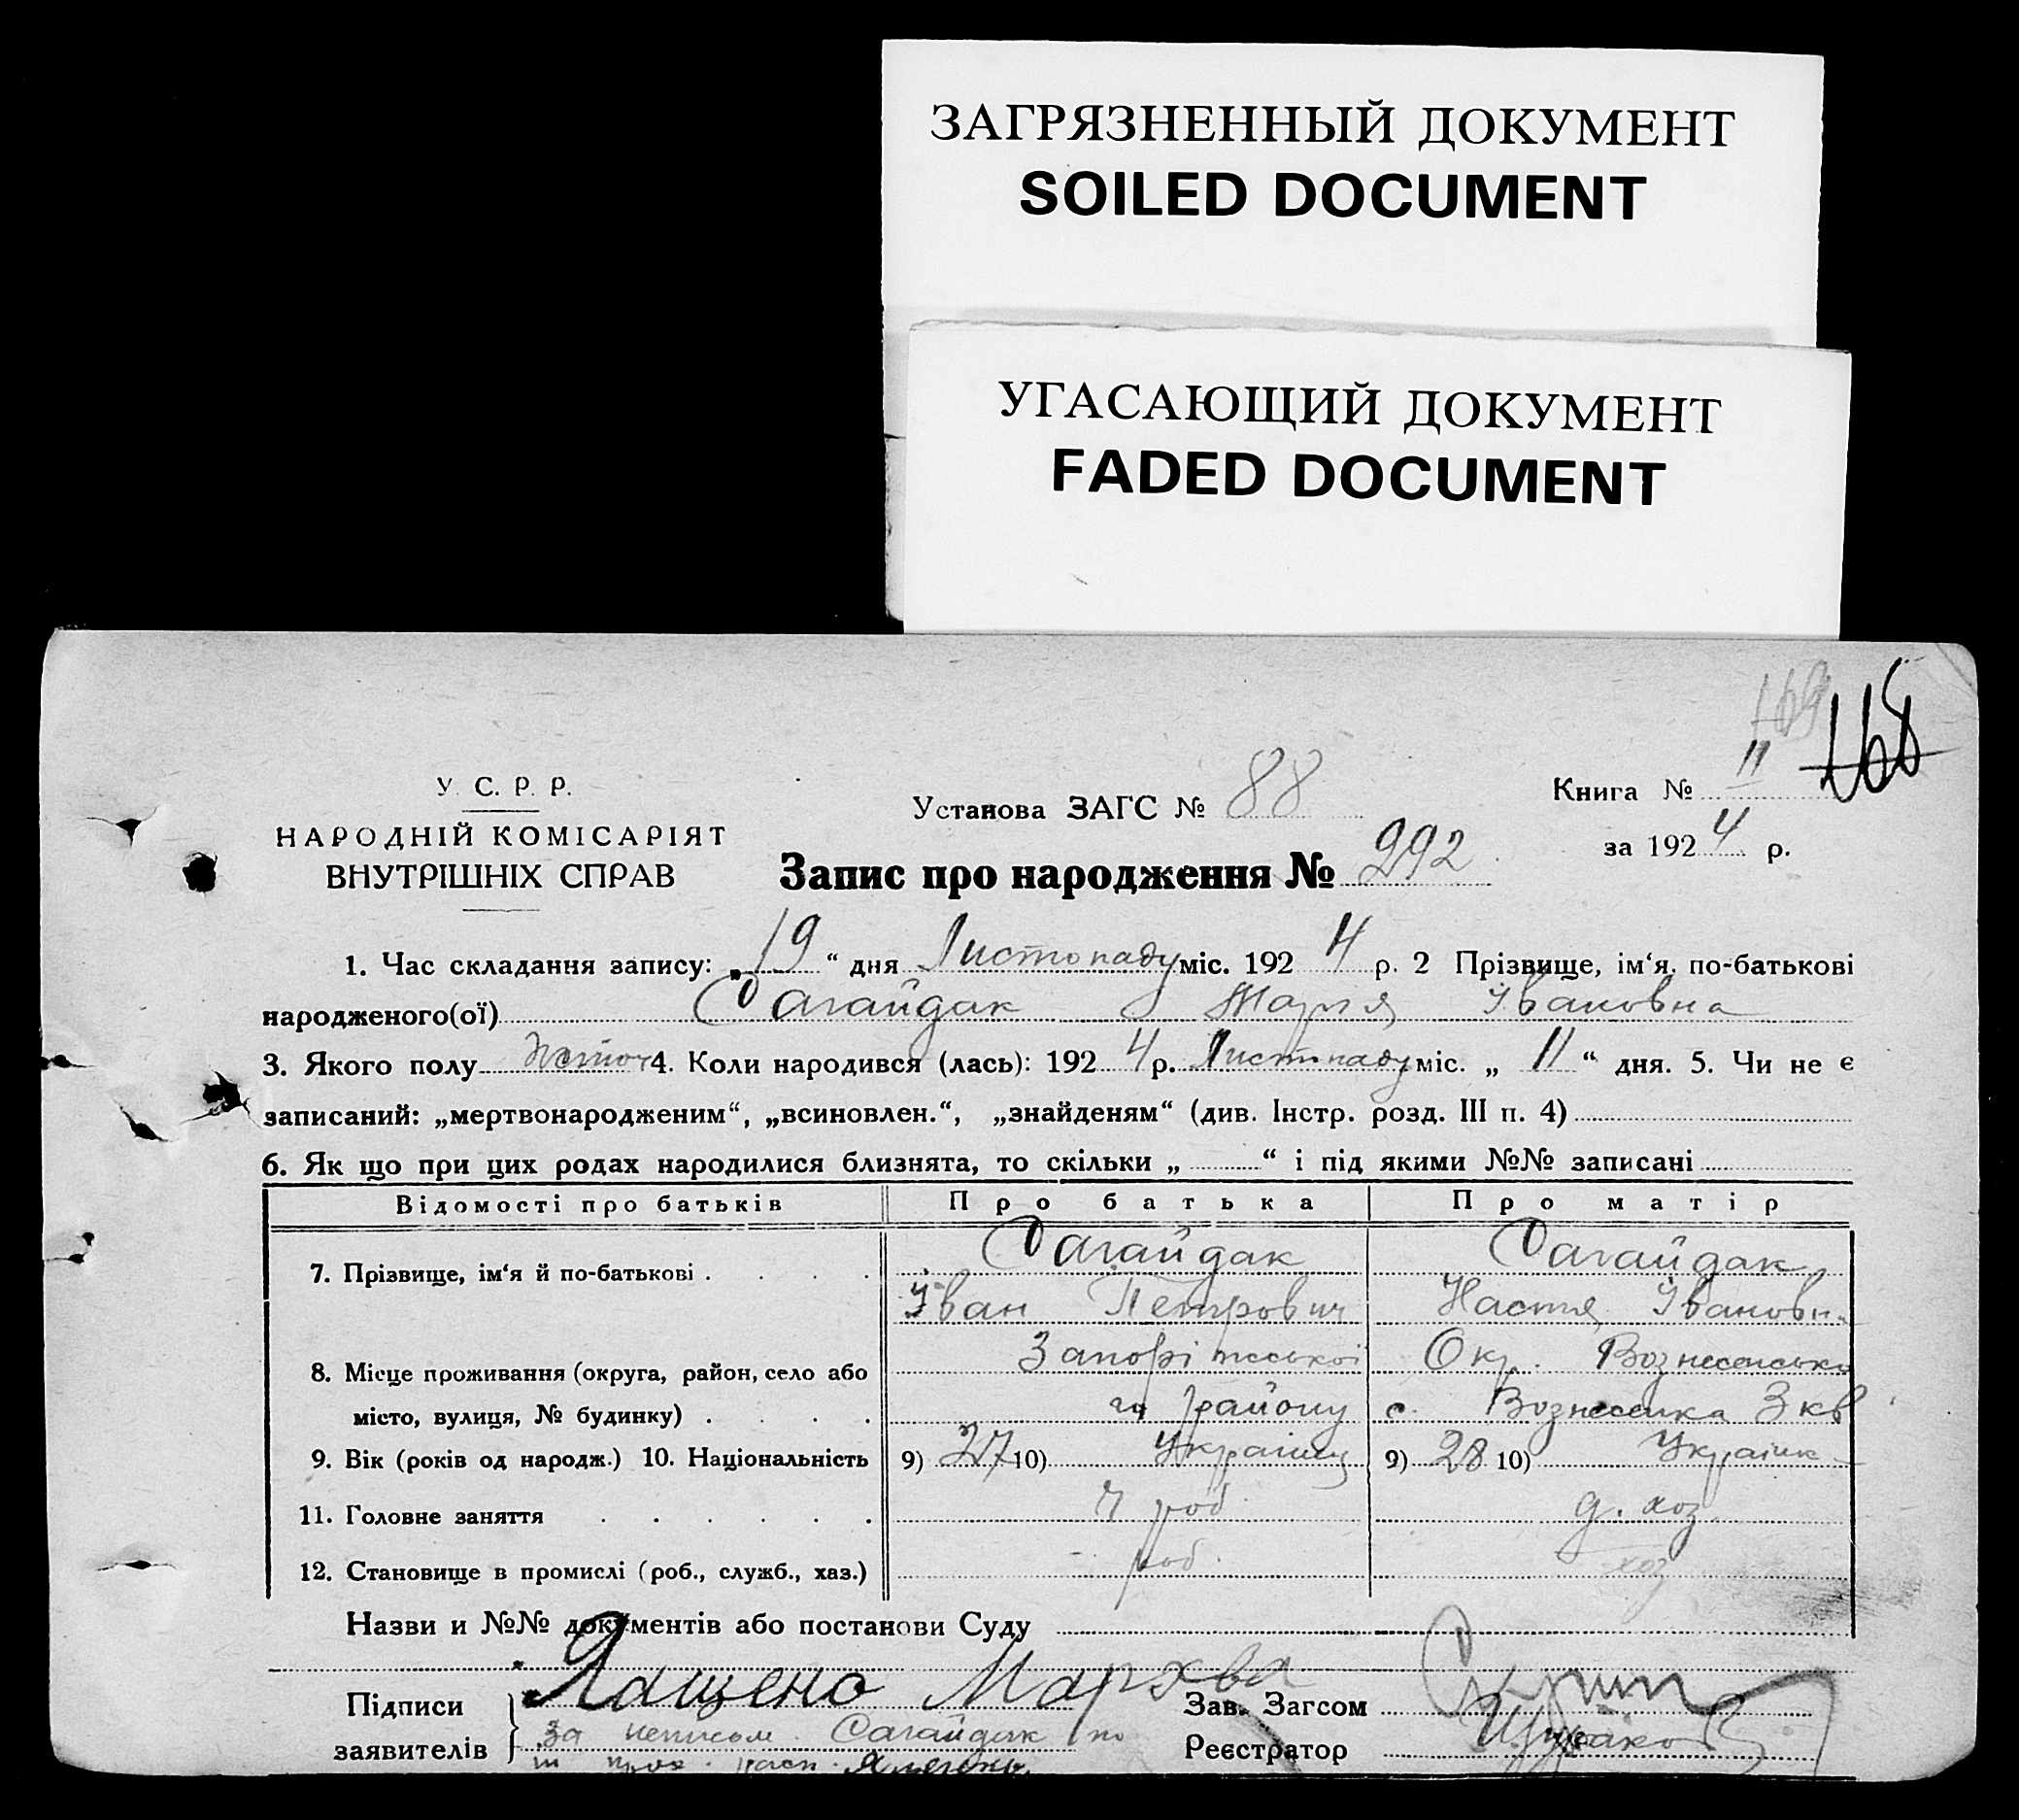 ЗАГРЯЗНЕННЫЙ ДОКУМЕНТ
SOILED DOCUMENT
УГАСАЮЩИЙ ДОКУМЕНТ
FADED DOCUMENT
169 168
У. С. Р. Р.
НАРОДНІЙ КОМІСАРІЯТ
ВНУТРІШНІХ СПРАВ
Установа ЗАГС № 88
Книга № 11
за 1924 р.
Запис про народження № 292
1. Час складання запису: „19“ дня Листопаду міс. 1924 р. 2 Прізвище, ім‘я, по-батькові
народженого(ої) Сагайдак Марія Івановна
3. Якого полу 4. Коли народився (лась): 1924 р. Листопаду міс. „11“ дня. 5. Чи не є
записаний: „мертвонародженим“, „всиновлен.“, „знайденям“ (див. Інстр. розд. III п. 4)
6. Як що при цих родах народилися близнята, то скільки „ “ і під якими №№ записані
Відомості про батьків Про батька Про матір
7. Прізвище, ім‘я й по-батькові Сагайдак Сагайдак
Іван Петрович Настя Івановна
8. Місце проживання (округа, район, село або Запоріжської Окр. Вознесенсько
місто, вулиця, № будинку) го району с. Вознесенка 3 кв
9. Вік (років од народж.) 10. Національність 9) 27 10) Українец 9) 28 10) Українк
11. Головне заняття Ч роб. д. хоз.
12. Становище в промислі (роб., служб., хаз.) роб. хоз
Назви и №№ документів або постанови Суду
Підписи Ящено Зав. Загсом
заявителів За неписом. Сагайдак по Реєстратор